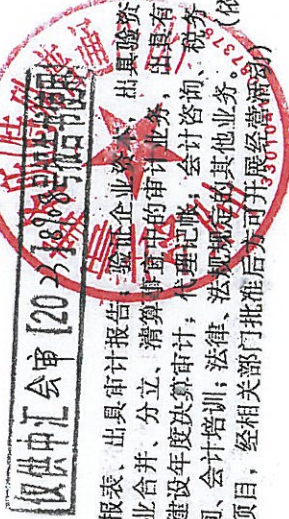 仅供中汇会审【2023】8808号报告书使用
报表、出具审计报告;验证企业资本,出具验资
业合并、分立、清算事宜中的审计业务,出具有
建设年度决算审计;代理记账;会计咨询、税务
会计培训;法律、法规规定的其他业务。(依
项目,经相关部门批准后方可开展经营活动)